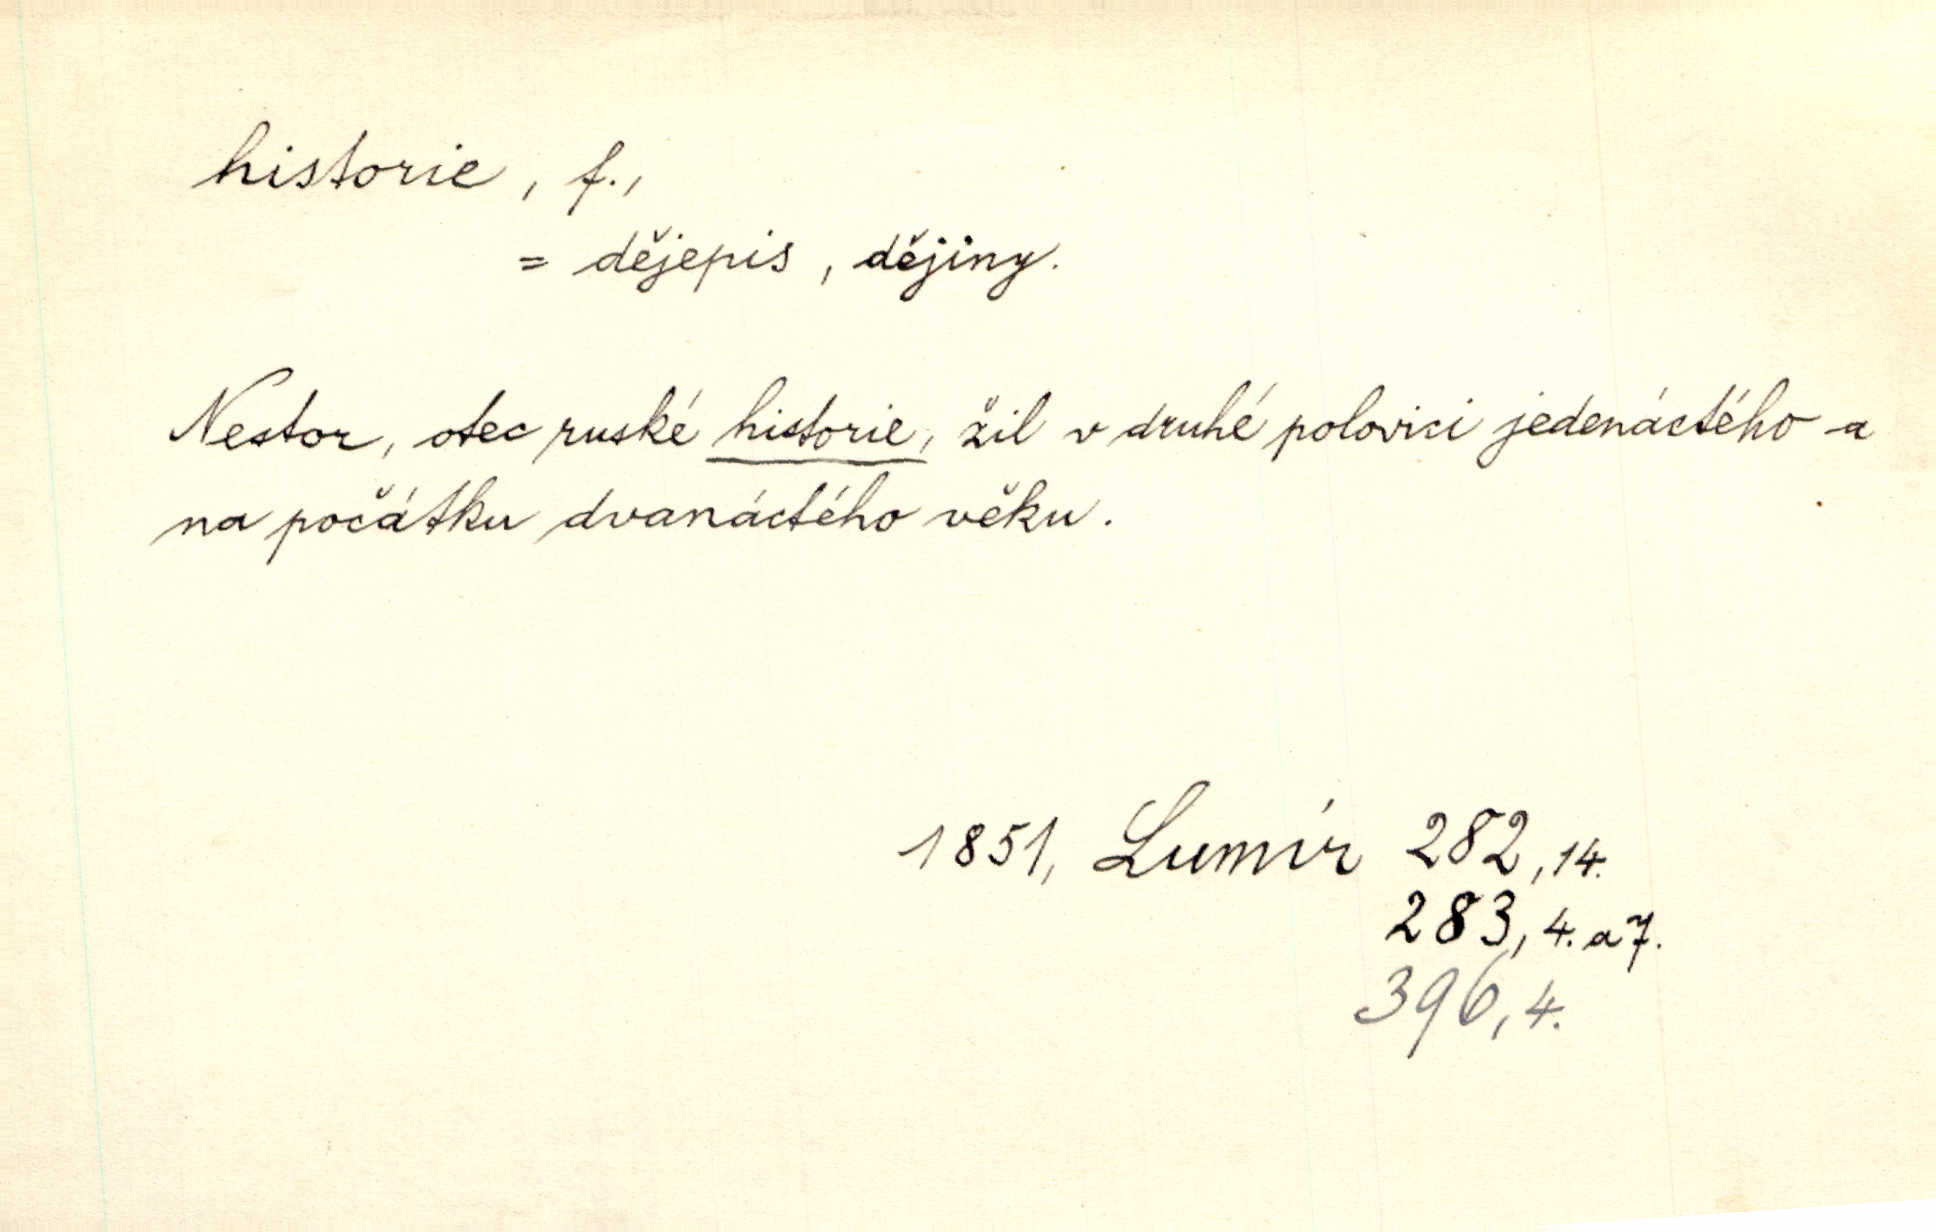 historie, f.,
= dějepis, dějiny.
Nestor, otec ruské historie, žil v druhé polovici jedenáctého a
na počátku dvanáctého věku.
1851, Lumír 282, 14.
283, 4. a 7.
396, 4.